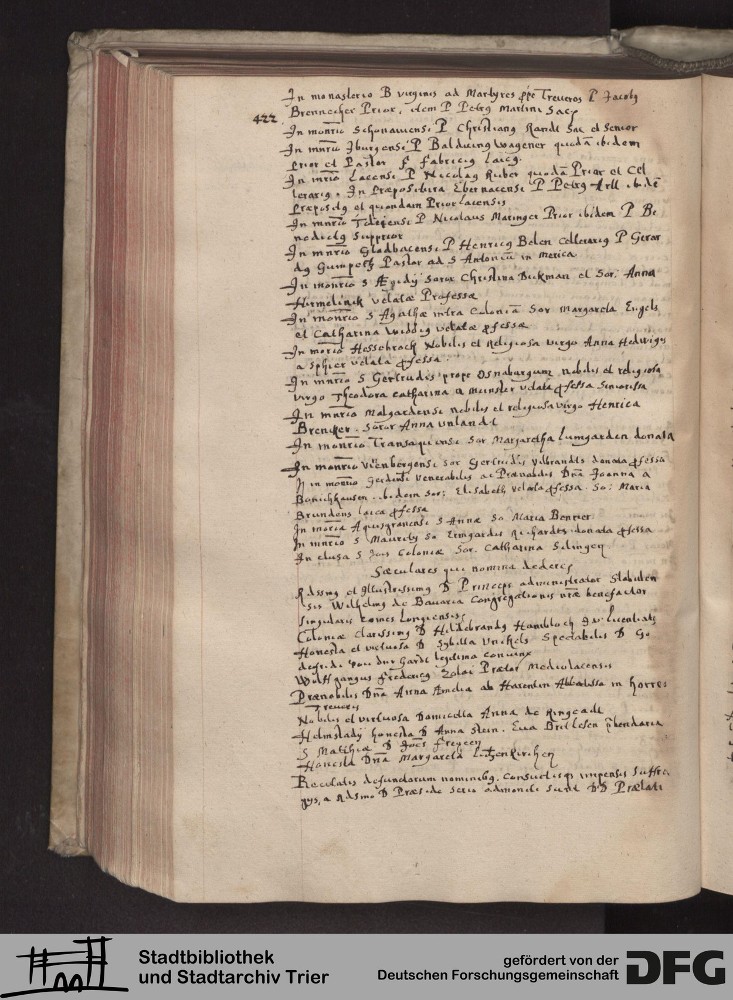 In monasterio B virginis ad Martyres ppe Treveros P Jacobg
Brennecher Prior, item P Petrg Martini Sacr
422
In monrio Schonauiensi P Christiang Randt Sac et Senior
In mnrio Iburgensi P Balduing Wagener quodā ibidem
prior et Pastor F Fabricig laicg.
In mrio Lacensi P Nicolag Ruber quodā Prior et Cel
lerarig. In Præpositura Ebernacensi P Petrg Arll ibidē
Præpositg et quondam Prior Lacensis
In mnrio Tdegensi P Nicolaus Matinger Prior ibidem P Be
nedictg Supprior
In mnrio Gladbacensi P Henricg Belen Cellerarig P Gerar
dg Gumpertz Pastor ad S Antoniū in Merica
In monrio S Ægidÿ Soror Christina Bickman et Sor: Anna
Hermelinck velatæ Professæ
In monrio S Agathæ intra Coloniā Sor Margareta Engels
et Catharina Widdig velatæ pfessæ
In morio Hessebroch Nobilis et Religiosa virgo Anna Hedwigis
a Sphier velata pfessa
In mnrio S Gertrudis prope Osnaburgum nobilis et religiosa
virgo Theodora Catharina a Munster velata pfessa Seniorissa
In mnrio Malgardensi nobilis et religiosa virgo Henrica
Brencker. Soror Anna Unlandt
In monrio Transaquensi Sor Margaretha Lumgarden donata
In monrio Vinnbergensi Sor Gertrudis Vilbrandts donata pfessa
It in monrio Gerdensi Venerabilis ac Prænobilis Dna Joanna a
Bonichhausen. ibidem Sor: Elisabeth velata pfessa. So: Maria
Brundens laica pfessa
In moria Aquisgranensi S Annæ So Maria Benrier
In mnrio S Mauritÿ So Ermgardis Richardts donata pfessa
In clusa S Jois Coloniæ Sor. Catharina Solingen
Sæculares qui nomina dedere
Rdssimg et Illustrissimg D Princeps administrator Stabulen
sis Wilhelmg de Bavaria Congregationis nræ benefactor
singularis Comes Longiensis
Coloniæ Clarissimg D Hildebrandg Hambloch J.V. Licentiatg
Honesta et virtuosa D Sybilla Unckels Spectabilis D Go
defridi von der Gardt legitima Coniunx
Wolffgangus Fredericg Zolai Prætor Mediolacensis
Prænobilis Dna Anna Amelia ab Harentin Abbatissa in horreo
Treveris
Nobilis et virtuosa Domicella Anna de Ringealt
Helmstadÿ honesta D Anna Stein. Eua Brillesen pbendaria
S Matthiæ D Joes Freyeen
Honesta Dna Margareta Lutzenkirchen
Recitatis defunctorum nominibg, consuetisqs impensis Suffra
gÿs, a Rdsmo D Præside serio admoniti sunt DD Prælati
Stadtbibliothek
und Stadtarchiv Trier
gefördert von der
Deutschen Forschungsgemeinschaft
DFG